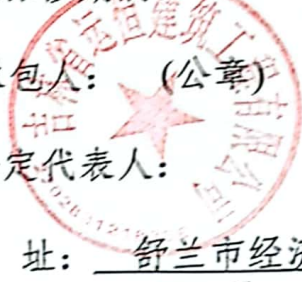 包人： (公章)
定代表人：
址： 舒兰市经济
吉林省运恒建筑工程有限公司